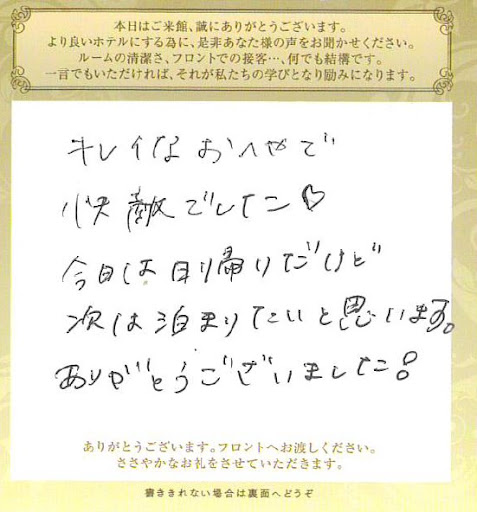 本日はご来館、誠にありがとうございます。
より良いホテルにする為に、是非あなた様の声をお聞かせください。
ルームの清潔さ、フロントでの接客…、何でも結構です。
一言でもいただければ、それが私たちの学びとなり励みになります。
キレイなおへやで
快敵でした♡
今日は日り帰りだけど
次は泊まりたいと思います。
ありがとうございました!
ありがとうございます。フロントへお渡しください。
ささやかなお礼をさせていただきます。
書ききれない場合は裏面へどうぞ